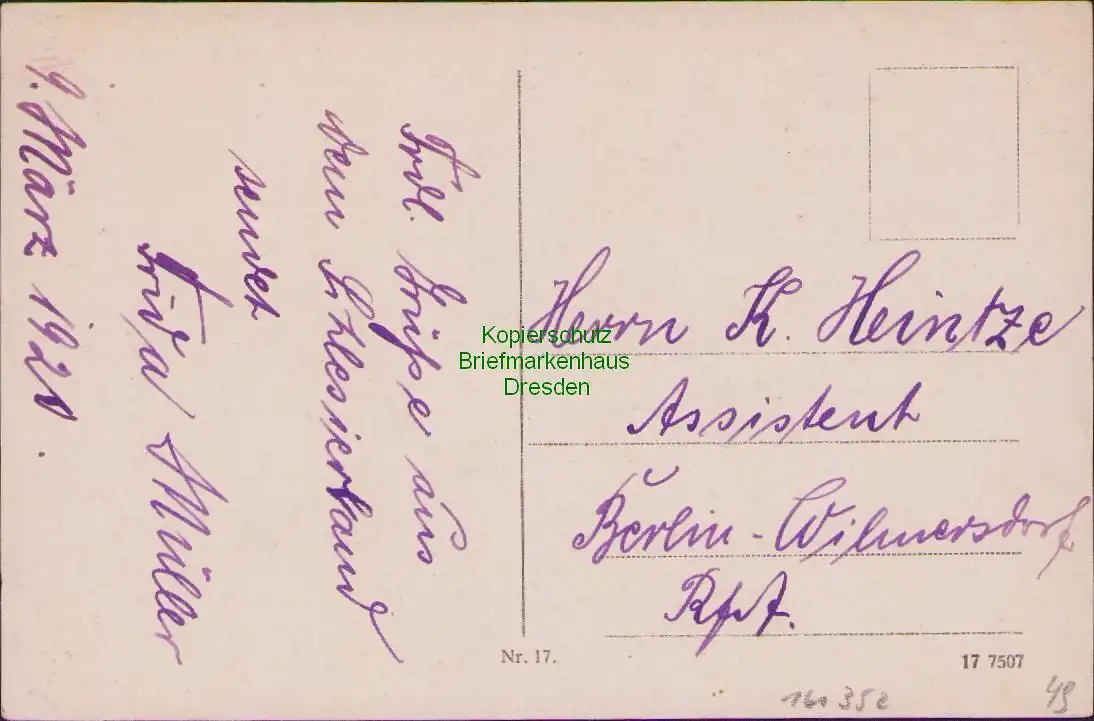 Frdl. Grüße aus
dem Schlesierland
sendet
Frida Müller
9. März 1921.
Herrn K. Heintze
Assistent
Berlin-Wilmersdorf
Kopierschutz
Briefmarkenhaus
Dresden
Nr. 17.
17 7507
352
49